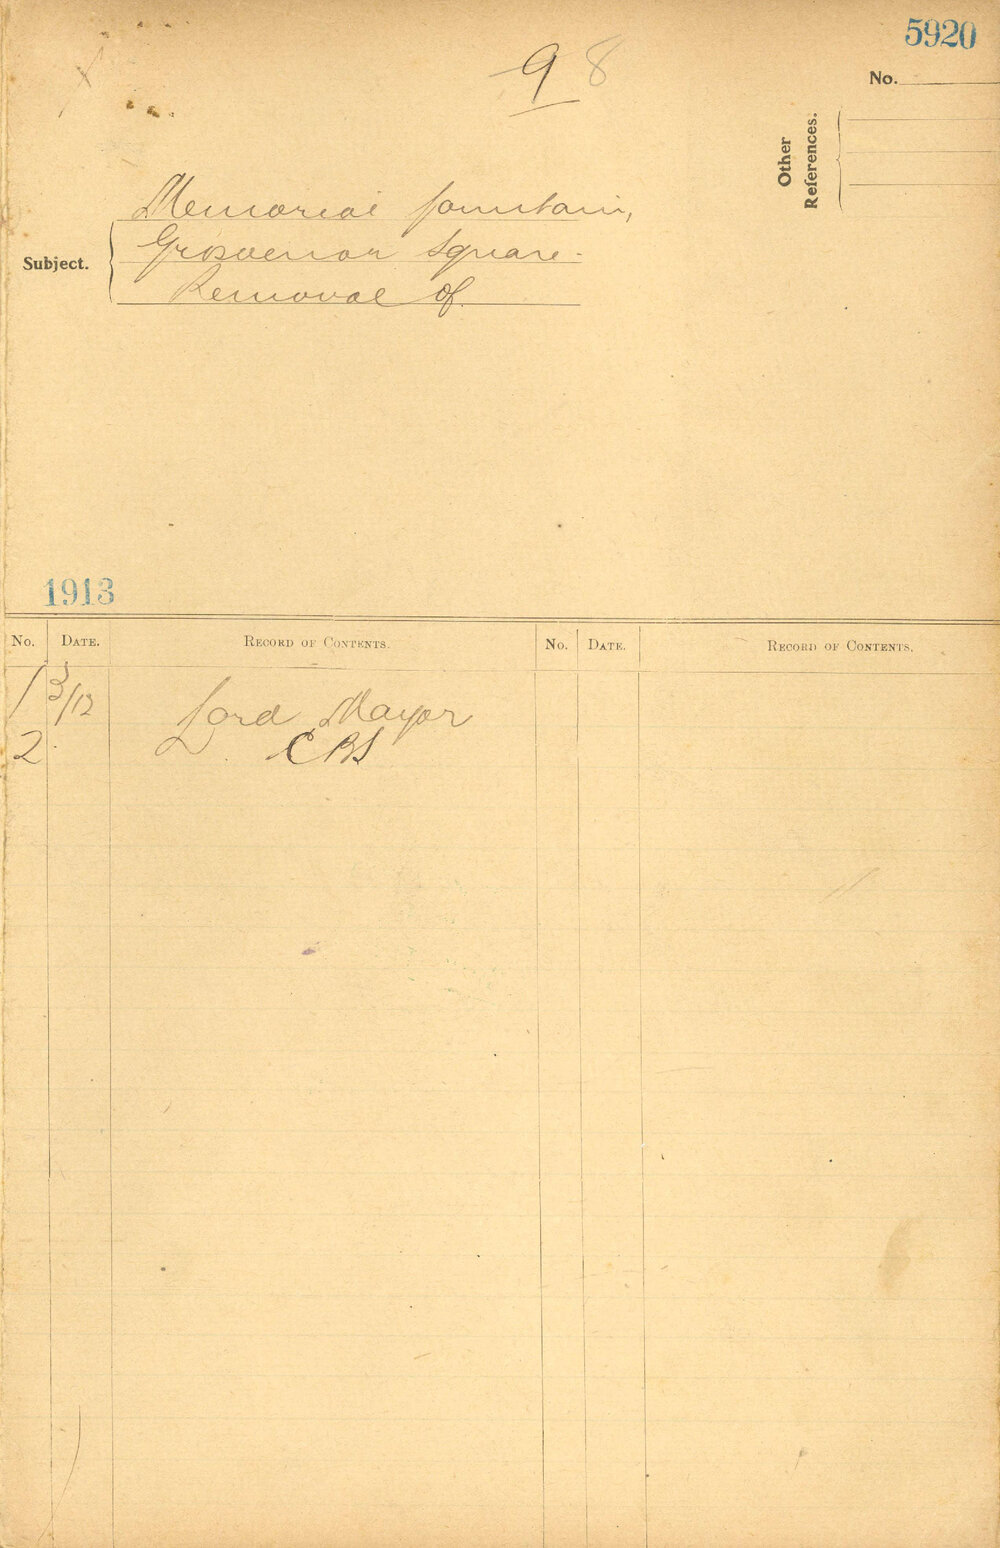 5920
9 8
No.
Other
References.
Memorial fountain,
Grosvenor Square -
Subject.
Removal of
1913
No. DATE. RECORD OF CONTENTS. No. DATE. RECORD OF CONTENTS.
1 3/12 Lord Mayor
2 CBS